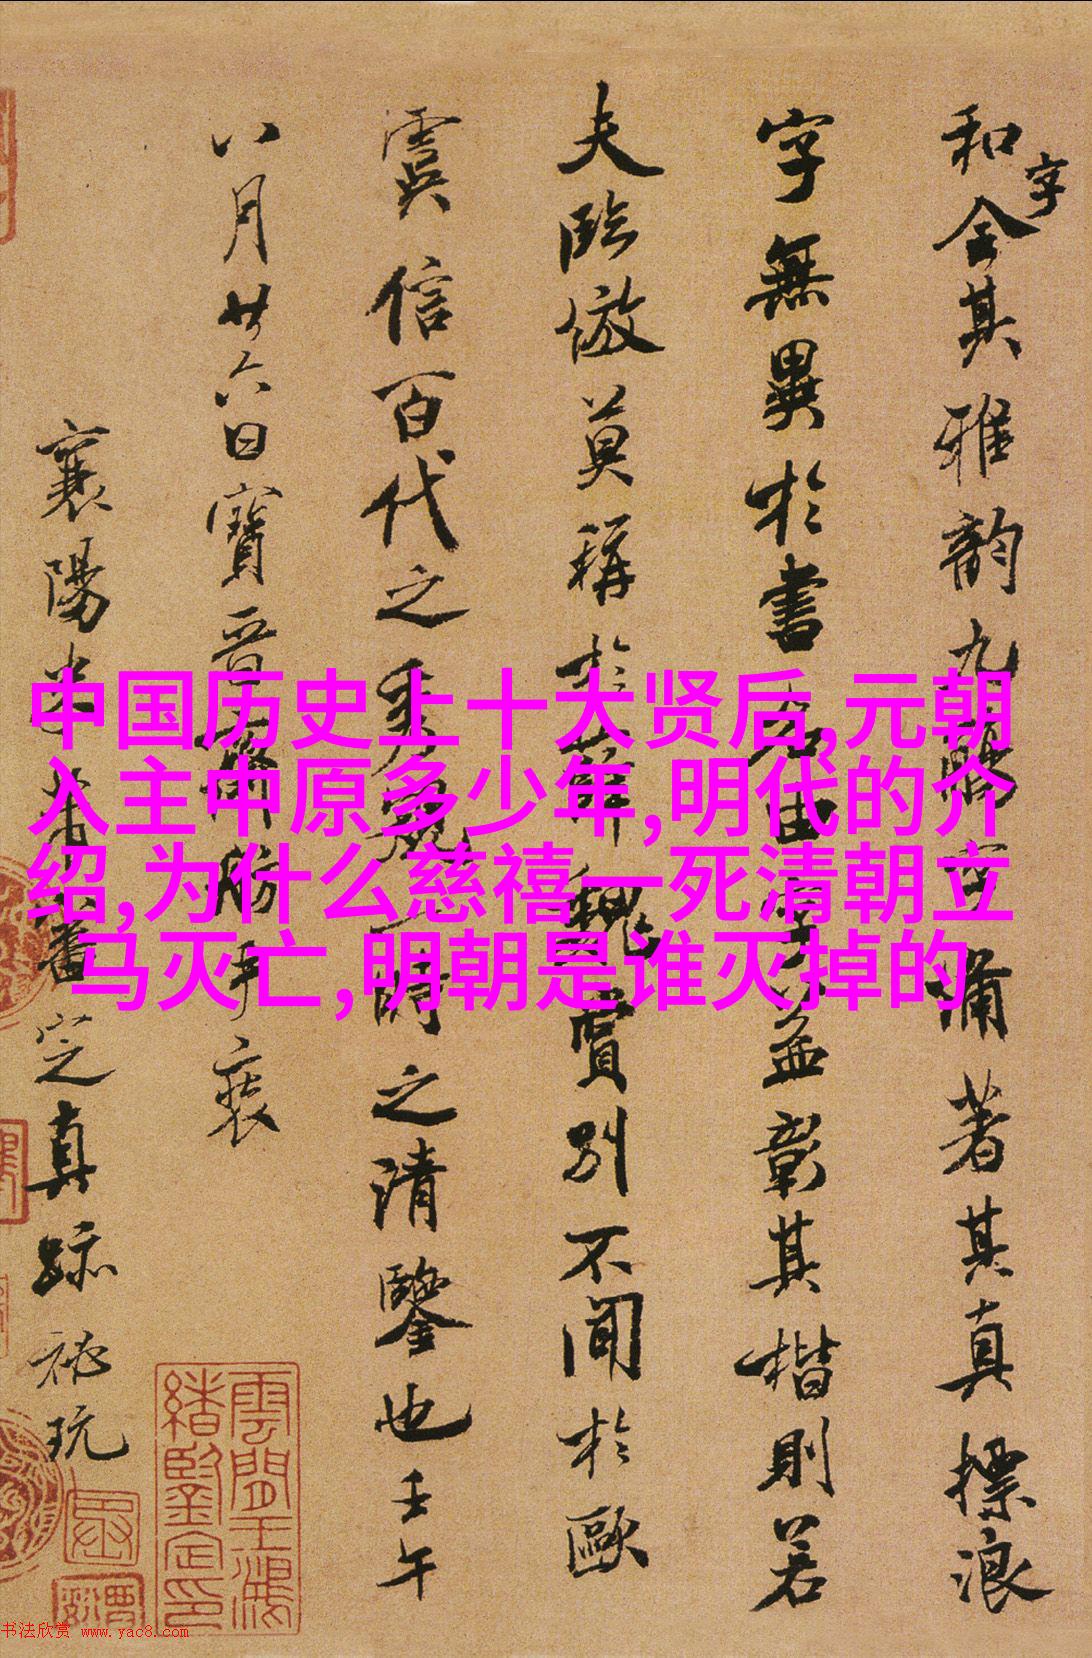 中国历史上十大贤后,元朝
入主中原多少年,明代的介
绍,为什么慈禧一死清朝立
马灭亡,明朝是谁灭掉的
和字全其雅韵九
著其真標浪
字無異於書
益彰其楷則若
夫臨倣莫稱於薛魏賞別不聞於歐
虞信百代之秀規一時之清鑒也壬午
八月廿六日寶晉齋舫手裝
襄陽
真跡祕玩
書法欣赏 www.yac8.com